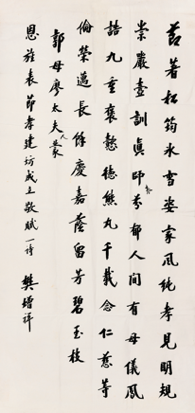 節著松筠冰雪姿家風純孝見明規
崇嚴壼訓真師表芬郁人間有母儀鳳
誥九重褒懿德熊丸千載念仁慈等
倫榮邁長餘慶嘉蔭留芳碧玉枝
郭母廖太夫人蒙
恩旌表節孝建坊成上敬賦一詩
樊增祥